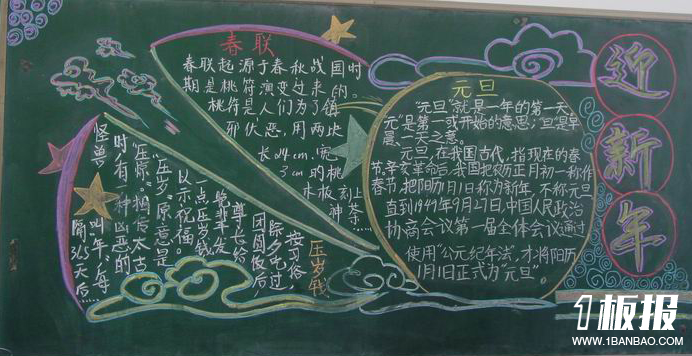 春联
春联起源于春秋战国时
期是桃符演变过来的。
桃符是人们为了镇
邪伏恶，用两块
长24cm、宽
3cm的桃
木板刻上
神荼……
元旦
“元旦”就是一年的第一天。
元”是第一或开始的意思；旦是早
晨、一天之意。
元旦，在我国古代，指现在的春
节，辛亥革命后，我国把农历正月初一称作
春节，把阳历1月1日称为新年，不称元旦
直到1949年9月27日，中国人民政治
协商会议第一届全体会议通过
使用“公元纪年法”，才将阳历
1月1日正式为“元旦”。
迎新年
压岁钱
按习俗，
除夕吃过
团圆饭后
尊长给
晚辈分发
一点压岁钱
以示祝福。
“压岁”原意是
“压惊”相传太古
时，有一种凶恶的
怪兽
叫“年”，每
隔365天后……
1板报
WWW.1BANBAO.COM